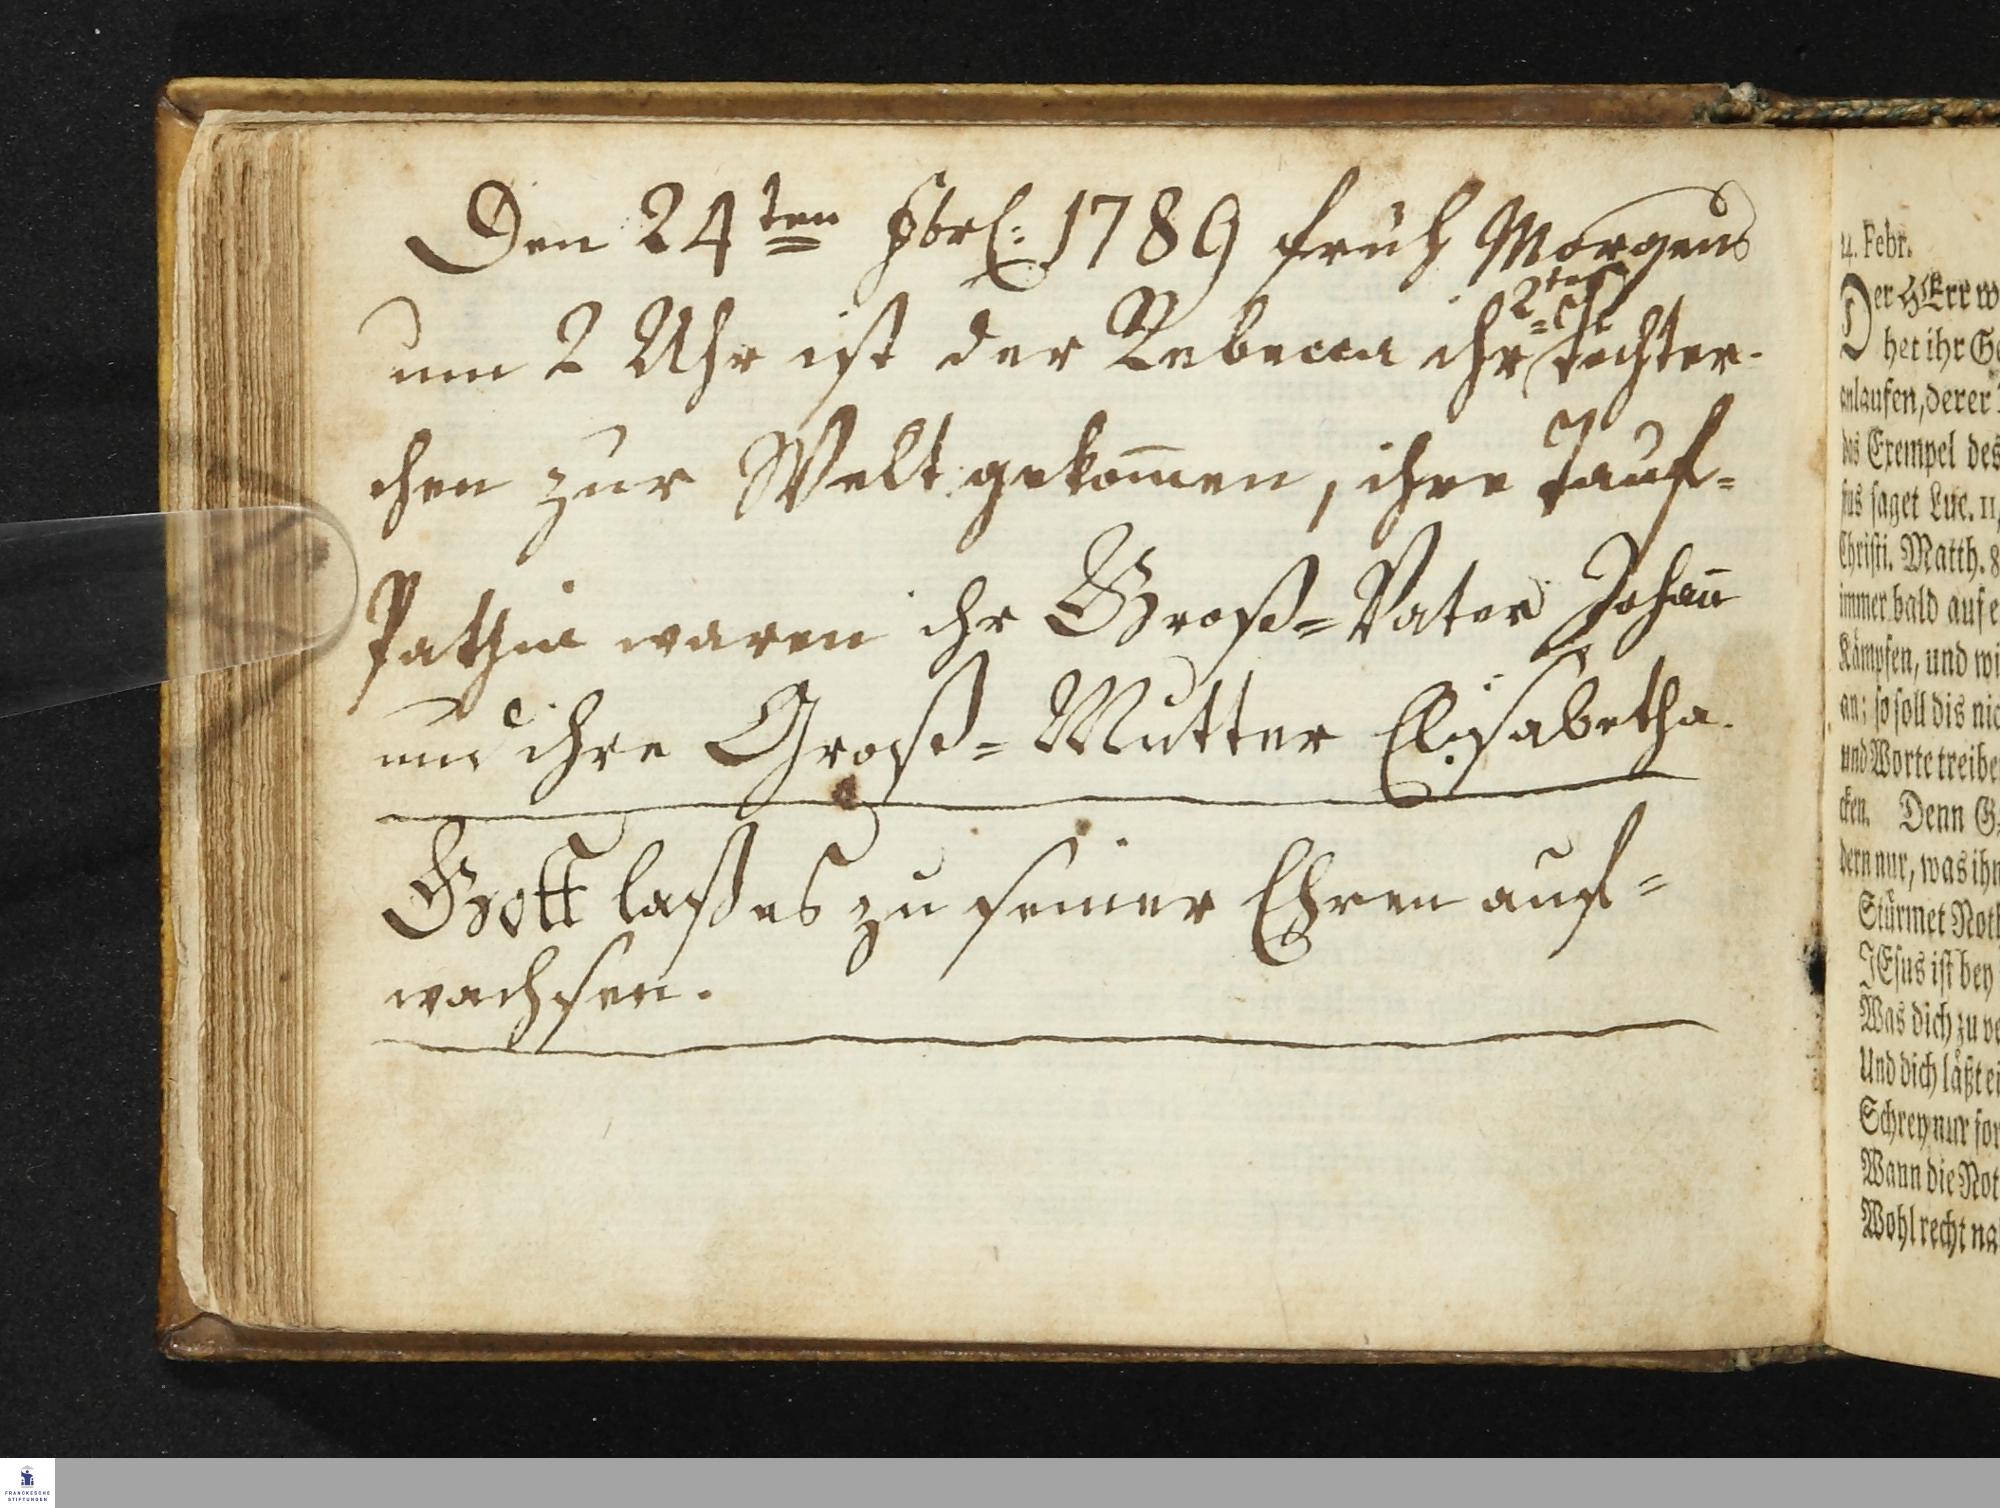 Den 24ten Fbrl: 1789 früh Morgens
um 2 Uhr ist der Rebecca ihr 2tes Töchter-
chen zur Welt gekom̄en, ihre Tauf-
Pathin waren ihr Groß-Vater Johan̄
und ihre Groß-Mutter Elisabetha.
Gott laß es zu seiner Ehren auf-
wachsen.
4. Febr.
Der HErr w
het ihr Ge
anlaufen, derer
das Exempel des
sus saget Luc. 11,
Christi. Matth. 8
immer bald auf e
Kämpfen, und wi
an; so soll dis nic
und Worte treibe
cken. Denn G
dern nur, was ihn
Stürmet Noth
JEsus ist bey
Was dich zu ve
Und dich läßt ei
Schrey nur for
Wann die Not
Wohl recht na
FRANCKESCHE
STIFTUNGEN